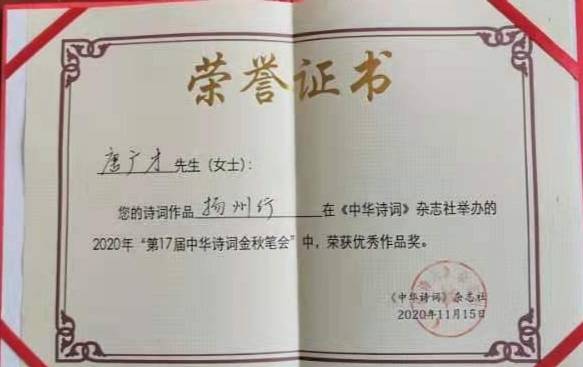 荣誉证书
唐广才 先生（女士）：
您的诗词作品 扬州行 在《中华诗词》杂志社举办的
2020年“第17届中华诗词金秋笔会”中，荣获优秀作品奖。
《中华诗词》杂志社
2020年11月15日